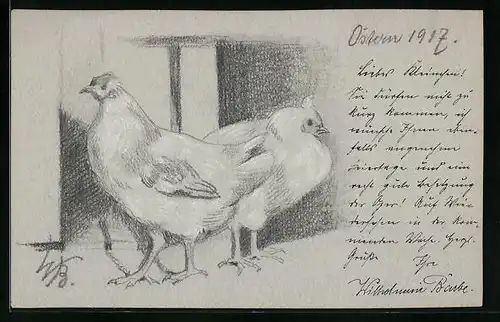 Ostern 1917.
Liebes Kleinchen!
Sie dürfen nicht zu
kurz kommen, ich
wünsche Ihnen eben-
falls angenehme
Feiertage und eine
recht gute Besetzung
der Oper! Auf Wie-
dersehen in der kom-
menden Woche. Herzl.
Grüße Ihre
Wilhelmine Barbe.
WB.